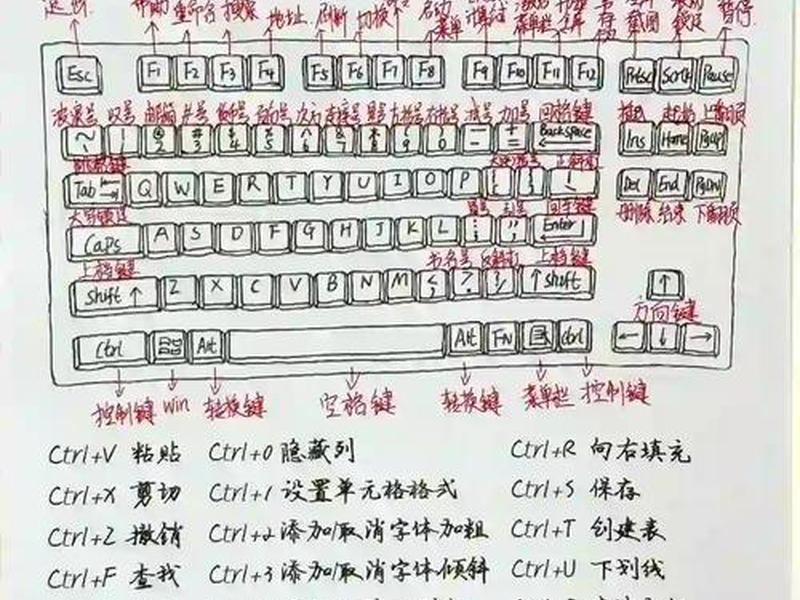 重命名 搜索 地址 刷新 切换
菜单
截图
暂停
Esc F1 F2 F3 F4 F5 F6 F7 F8 F9 F10 F11 F12 Prtsc Scrlk Pause
波浪号 叹号 邮箱 井号 百分号 次方 连接号 星号 左括号 右括号 减号 加号 回格键 插入 起始 上翻页
~ ! @ 2 # 3 $ 4 % 5 ^ 6 & 7 * 8 ( 9 ) 0 - + = Backspace Ins Home PgUp
Tab Q W E R T Y U I O P { [ } ] Del End PgDN
大写锁定 冒号 引号 回车键 删除 结束 下翻页
Caps A S D F G H J K L : ; " Enter
上档键 书名号 上档键
Shift ↑ Z X C V B N M < , > . ? / ↑ Shift ↑
方向键
Ctrl Alt Alt FN Ctrl ← ↓ →
控制键 Win 转换键 空格键 转换键 菜单栏 控制键
Ctrl+V 粘贴 Ctrl+0 隐藏列 Ctrl+R 向右填充
Ctrl+X 剪切 Ctrl+1 设置单元格格式 Ctrl+S 保存
Ctrl+Z 撤销 Ctrl+2 添加/取消字体加粗 Ctrl+T 创建表
Ctrl+F 查找 Ctrl+3 添加/取消字体倾斜 Ctrl+U 下划线